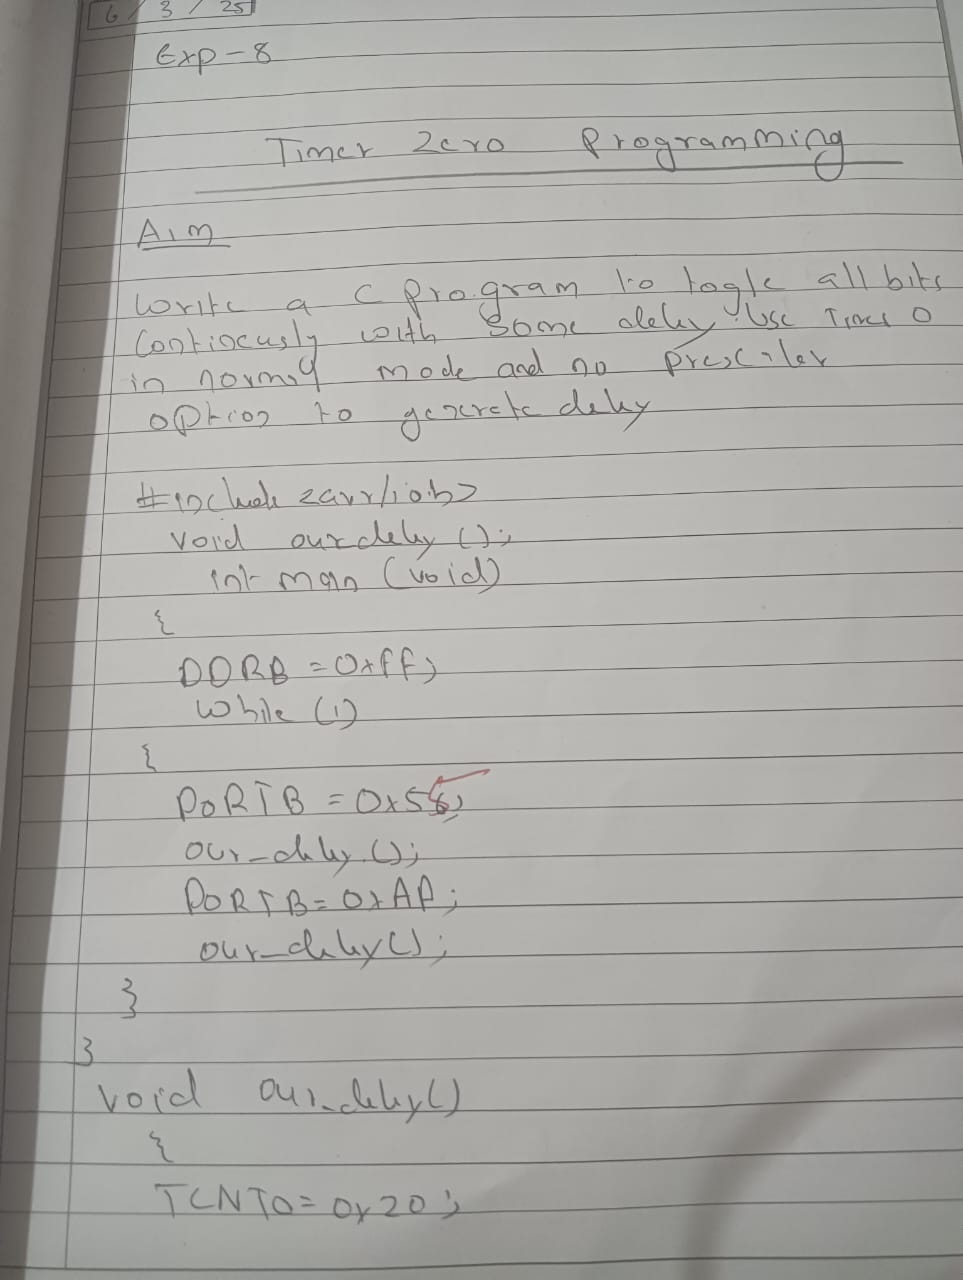 6 / 3 / 25
Exp - 8
Timer Zero Programming
Aim
Write a C program to togle all bits
Contiocusly with Some delay. Use Timer 0
in normal mode and no prescaler
option to generate delay
#include <avr/io.h>
void our delay ();
int main (void)
{
DDRB = 0xff;
while (1)
{
PORTB = 0x55;
our_delay ();
PORTB = 0xAA;
our_delay();
}
}
void our_delay()
{
TCNT0 = 0x20;